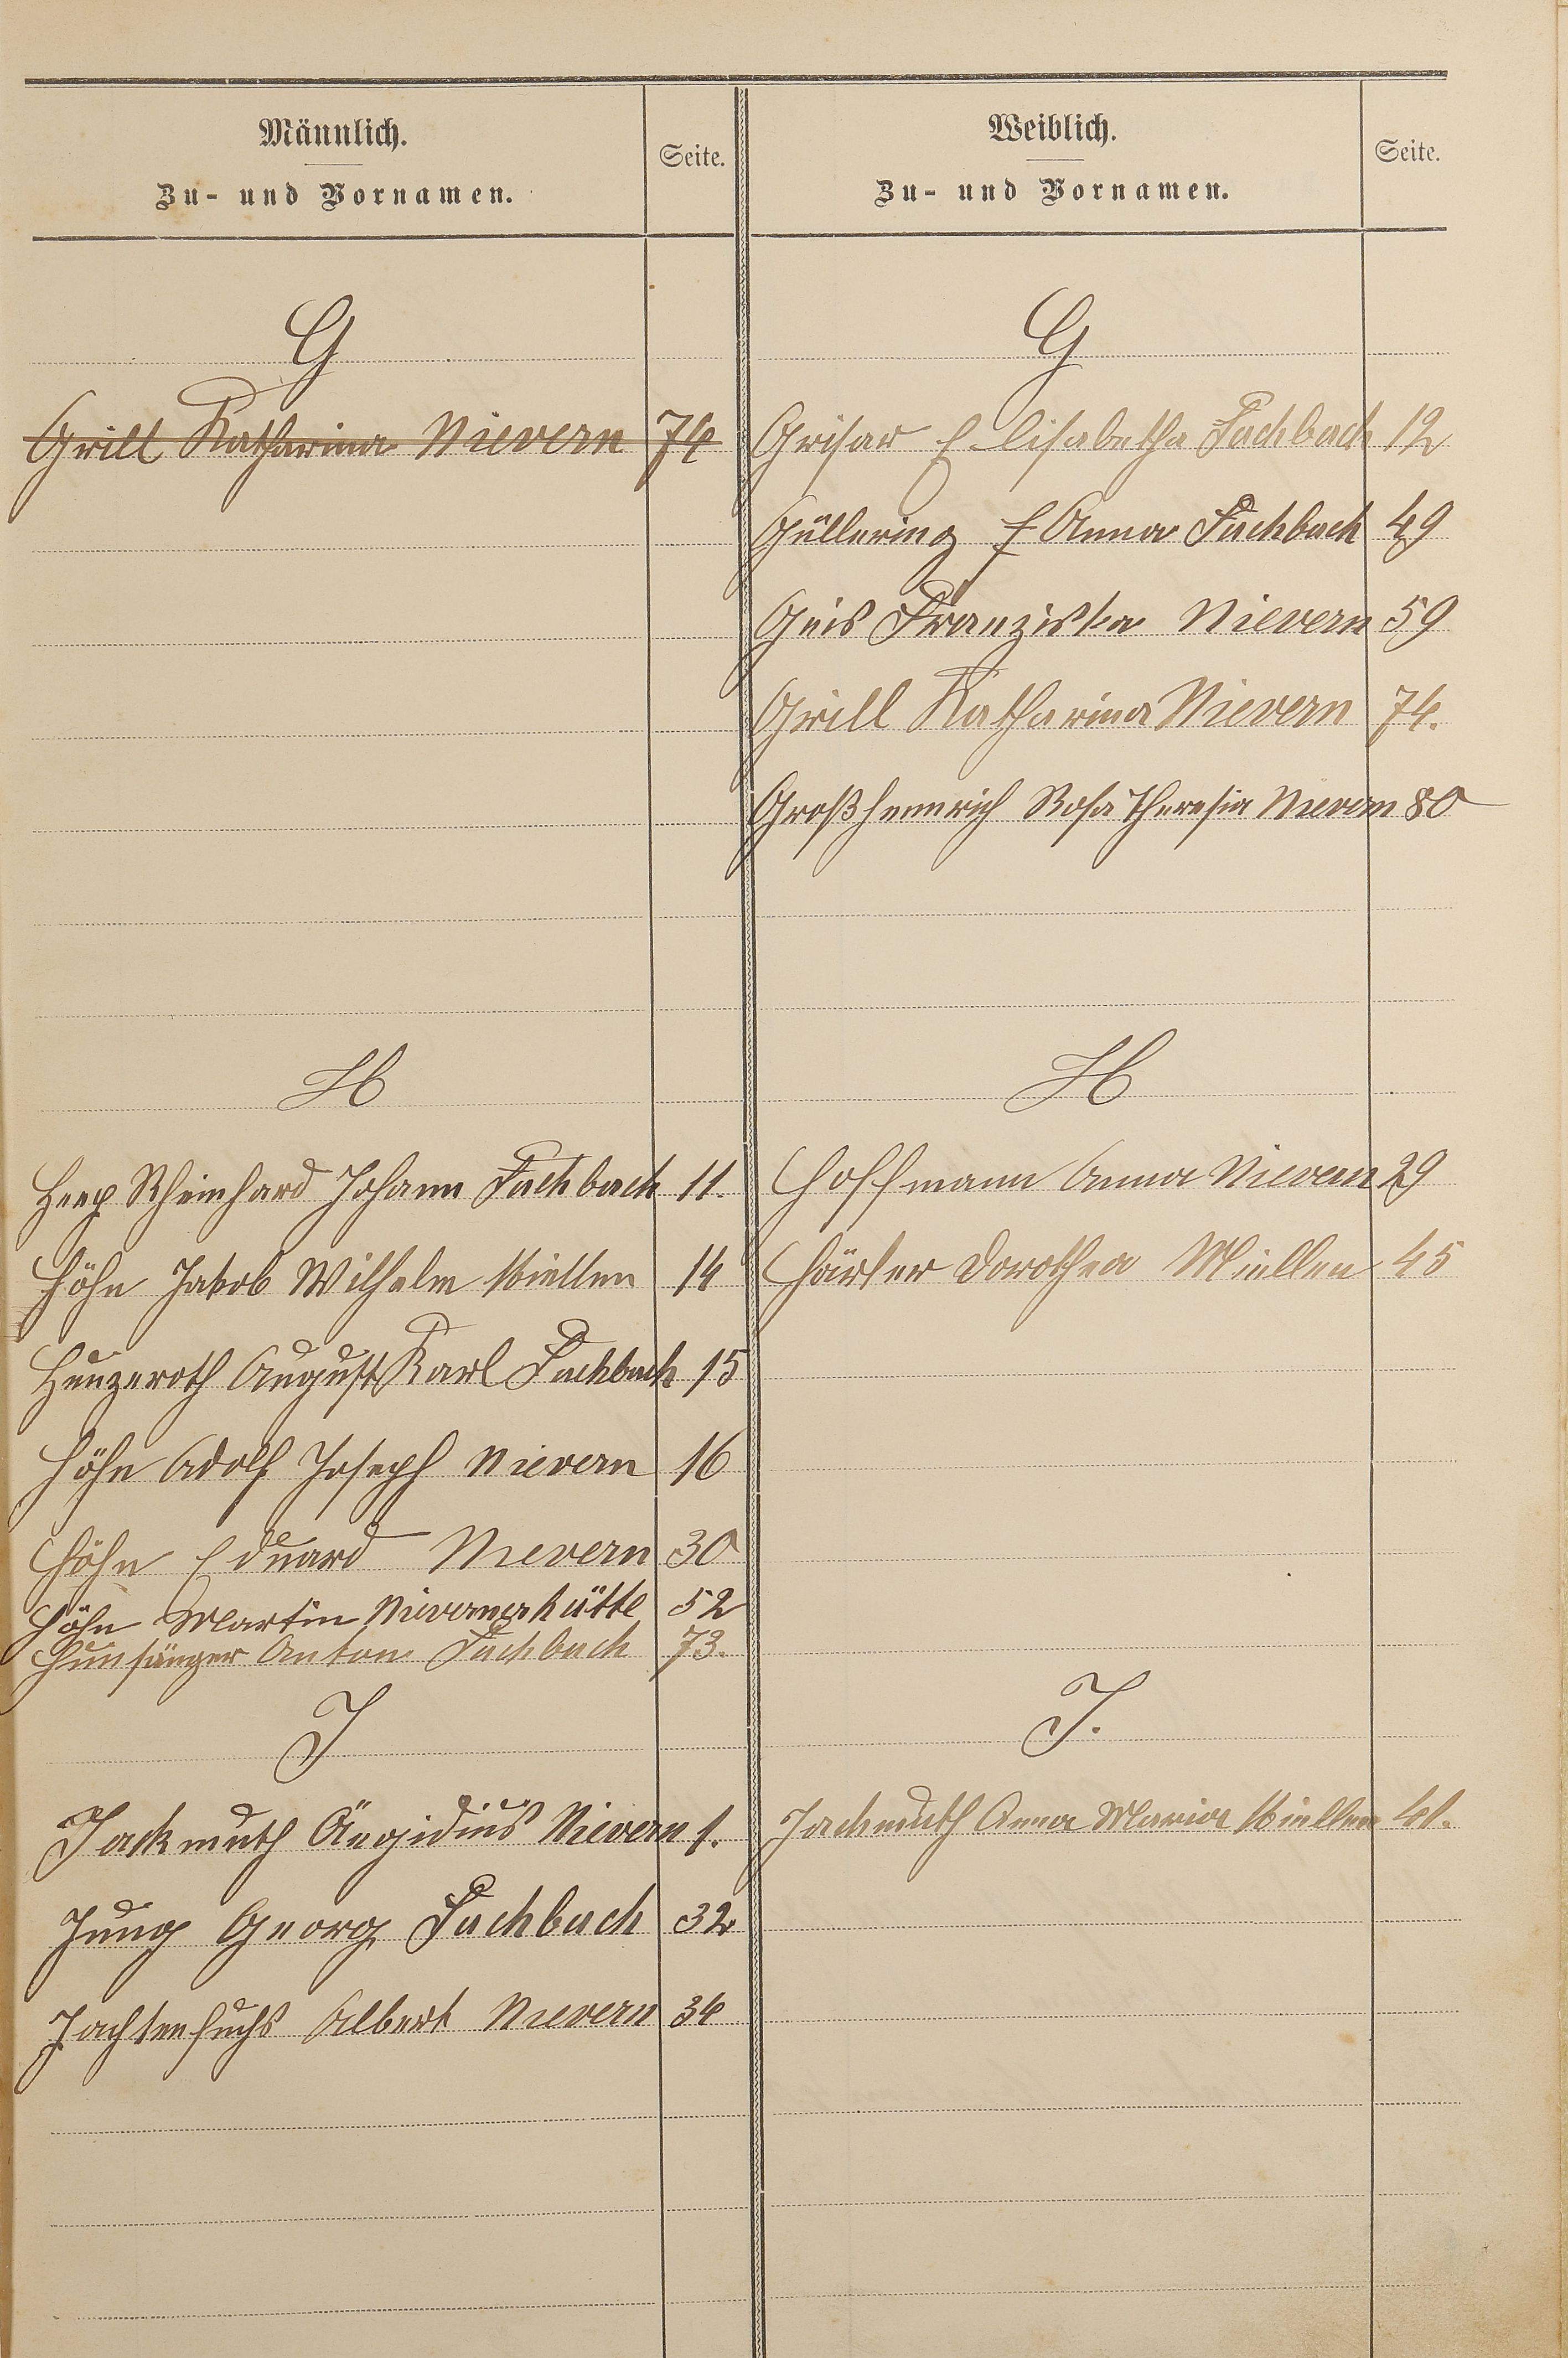 Männlich.
Zu- und Vornamen.
Seite.
G
Grill Katharina Nievern 74
H
Heep Rheinhard Johann Fachbach 11.
Höhn Jakob Wilhelm Miellen 14
Hunzeroth August Karl Fachbach 15
Höhn Adolf Joseph Nievern 16
Höhn Eduard Nievern 30
Höhn Martin Nievernerhütte 52
Hunsänger Anton Fachbach 73.
J
Jackmuth Äegidius Nievern 1.
Jung Georg Fachbach 32
Jachtenfuchs Albert Nievern 34
Weiblich.
Zu- und Vornamen.
Seite.
G
Grisar Elisabetha Fachbach 12
Güllering E Anna Fachbach 49
Geis Franziska Nievern 59
Grill Katharina Nievern 74.
Großhennrich Rosa Theresia Nievern 80
H
Hoffmann Anna Nievern 29
Härter Dorothea Miellen 45
J.
Jackmuth Anna Maria Miellen 41.